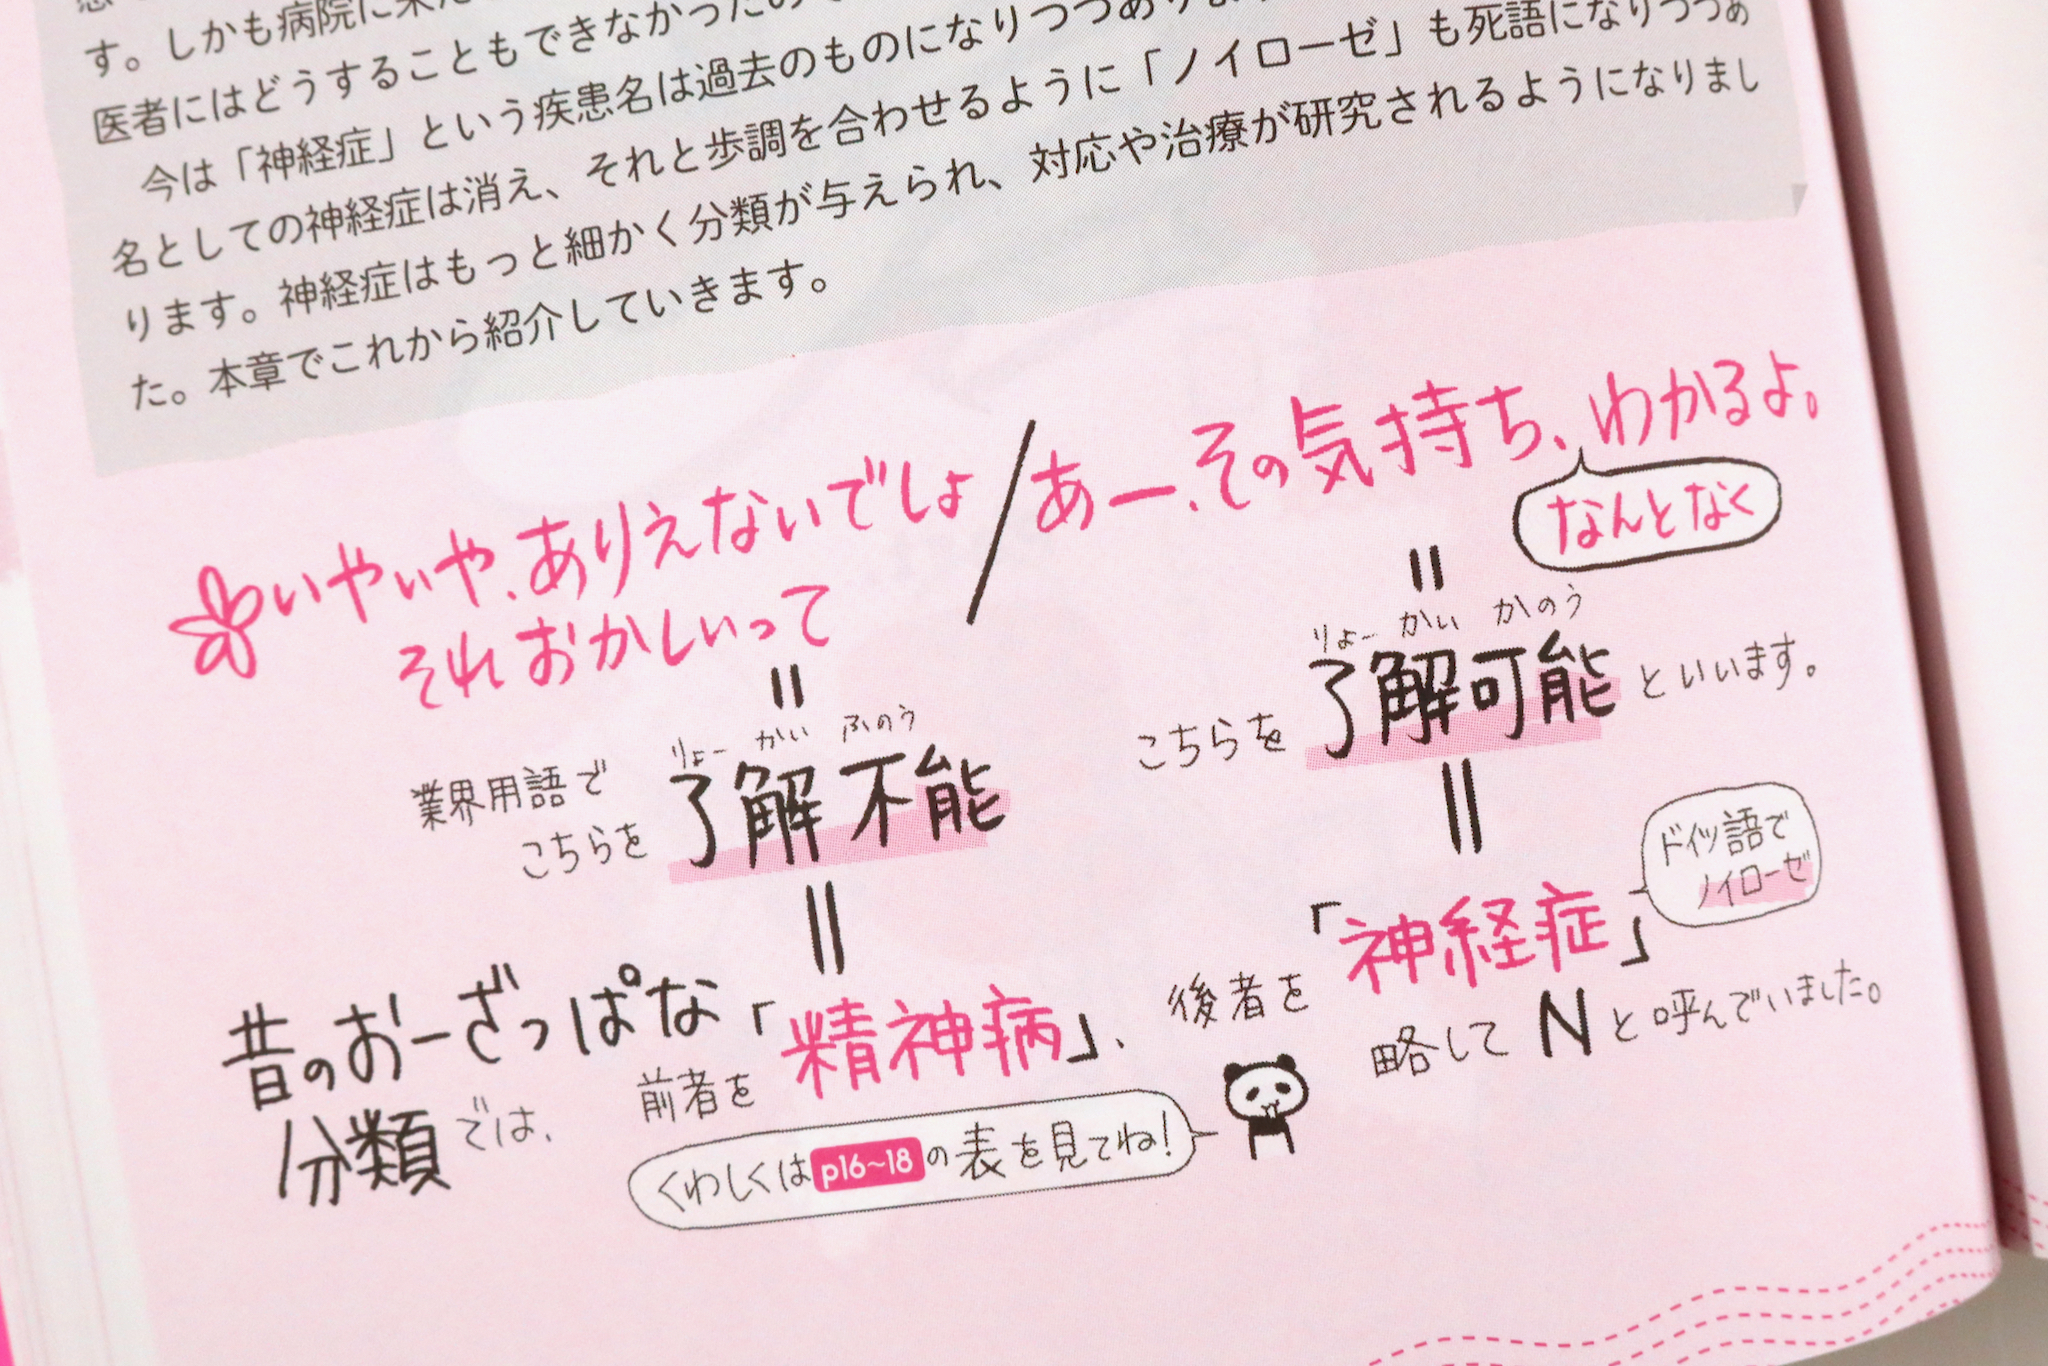 す。しかも病院に来た
医者にはどうすることもできなかったので
今は「神経症」という疾患名は過去のものになりつつあります
名としての神経症は消え、それと歩調を合わせるように「ノイローゼ」も死語になりつつあ
ります。神経症はもっと細かく分類が与えられ、対応や治療が研究されるようになりまし
た。本章でこれから紹介していきます。
いやいや、ありえないでしょ
それおかしいって
あー、その気持ち、わかるよ。
なんとなく
=
りょーかいふのう
業界用語で
こちらを
了解不能
=
りょーかいかのう
こちらを了解可能といいます。
=
=
昔のおーざっぱな
分類では、
前者を「精神病」、
後者を「神経症」
ドイツ語で
ノイローゼ
略してNと呼んでいました。
くわしくはp16~18の表を見てね!